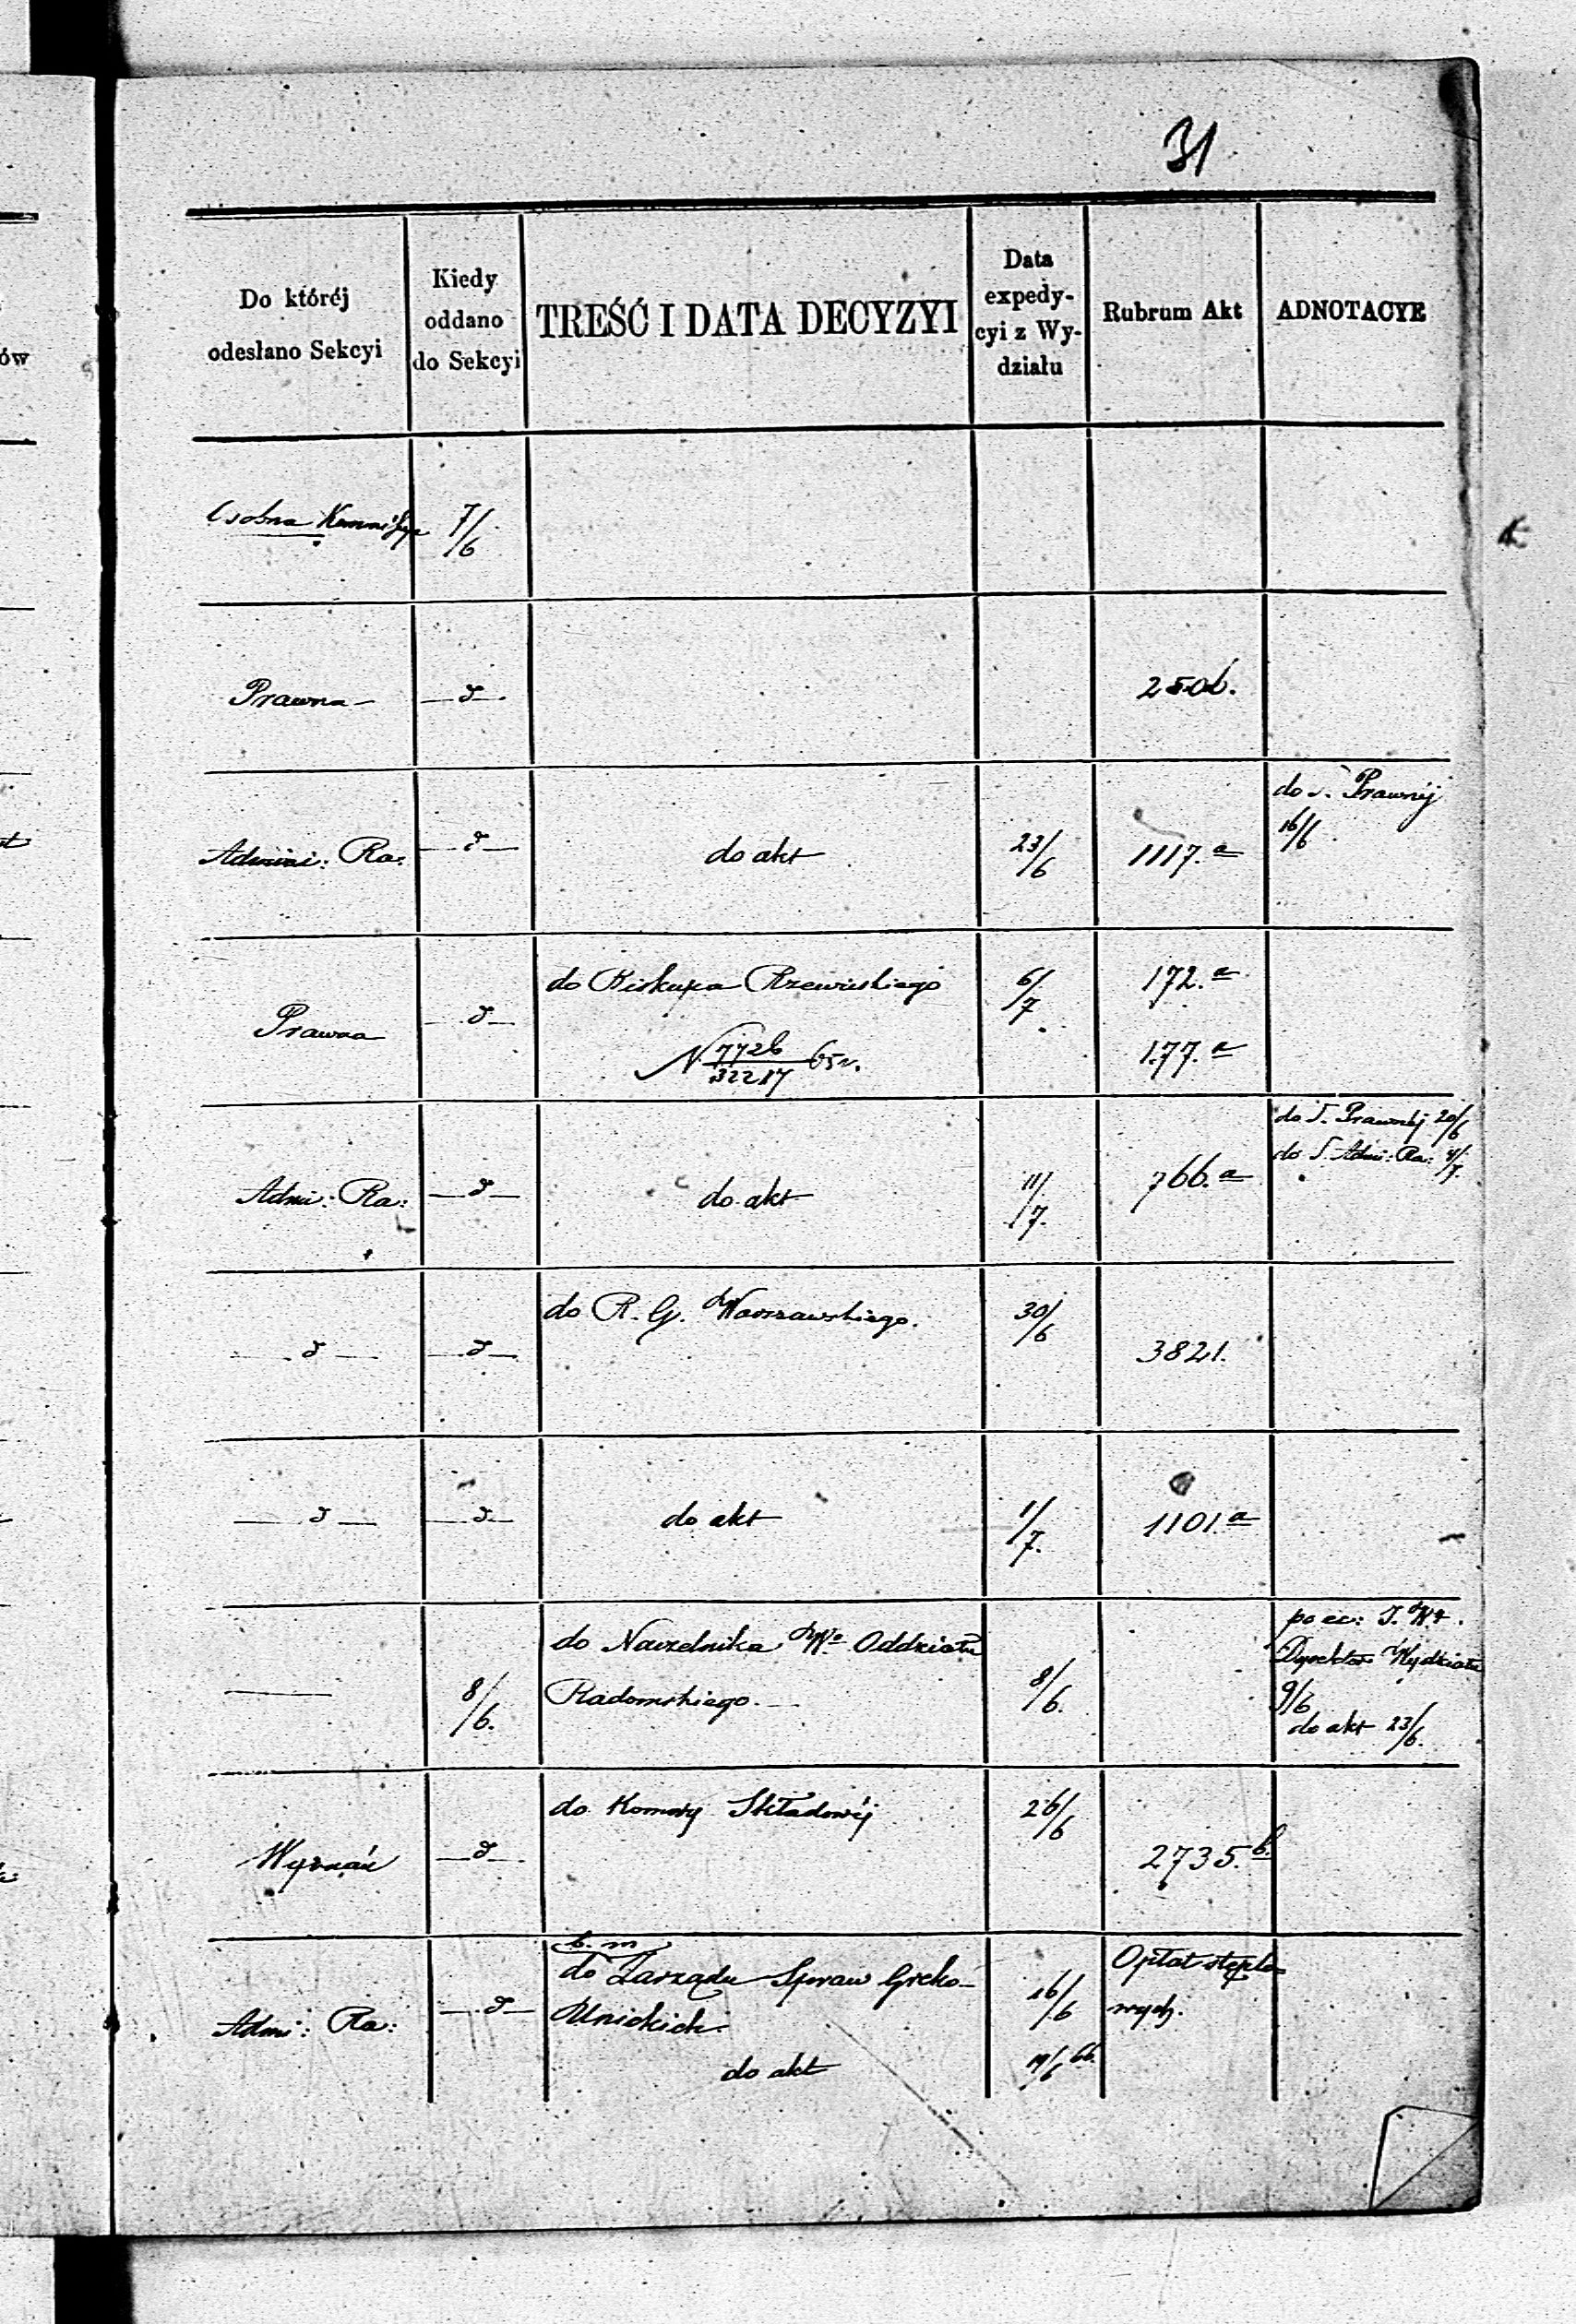 31
Do któréj
odesłano Sekcyi
Kiedy
oddano
do Sekcyi
TREŚĆ I DATA DECYZYI
Data
expedy-
cyi z Wy-
działu
Rubrum Akt
ADNOTACYE
Osobna Kommissya 7/6
Prawna — d — 250b.
do S. Prawnéj
16/6
Admini: Ra: — d — do akt 23/6 1117.a
do Biskupa Rzewuskiego 6/7 172.a
Prawna — d —
N. 7726/32217 65 r. 177.a
do S. Prawnéj 20/6
do S. Admi: Ra: 4/7
Admi: Ra: — d — do akt 11/7. 766.a
do R. G. Warszawskiego. 30/6
— d — — d — 3821.
— d — — d — do akt 1/7. 1101.a
Dyrektora Wydziału
do Naczelnika Wo Oddziału
— 8/6. Radomskiego. — 8/6. 9/6
do akt 23/6.
do Komory Składowéj 26/6
Wyznań — d — 2735.b.
b. m
do Zarządu Spraw Greko- 16/6 Opłat stęplo-
Admi: Ra: — d — Unickich. wych.
do akt 19/6 66.